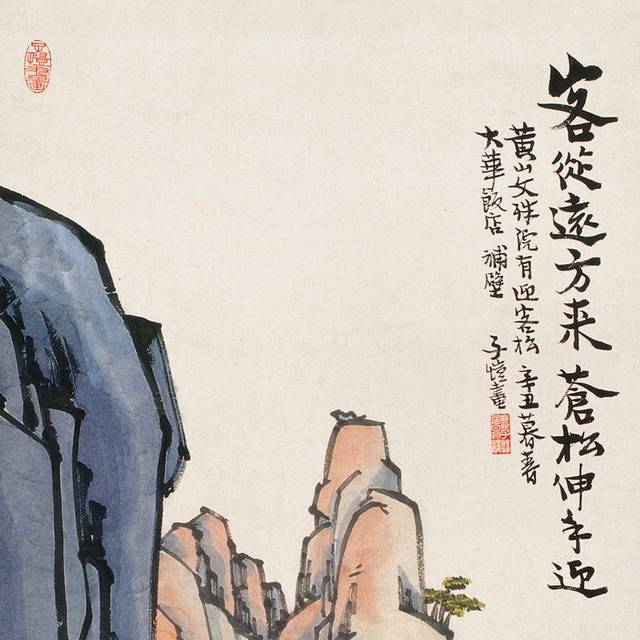 客從遠方来 蒼松伸手迎
黄山文殊院有迎客松 辛丑暮春
大華飯店 補壁 子愷畫